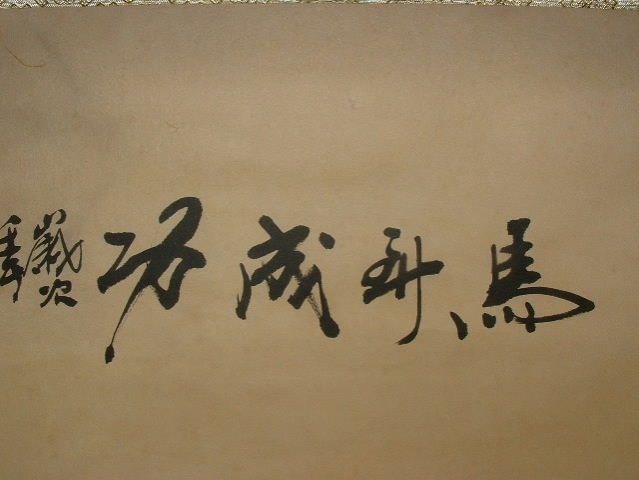 馬到成功
歲次